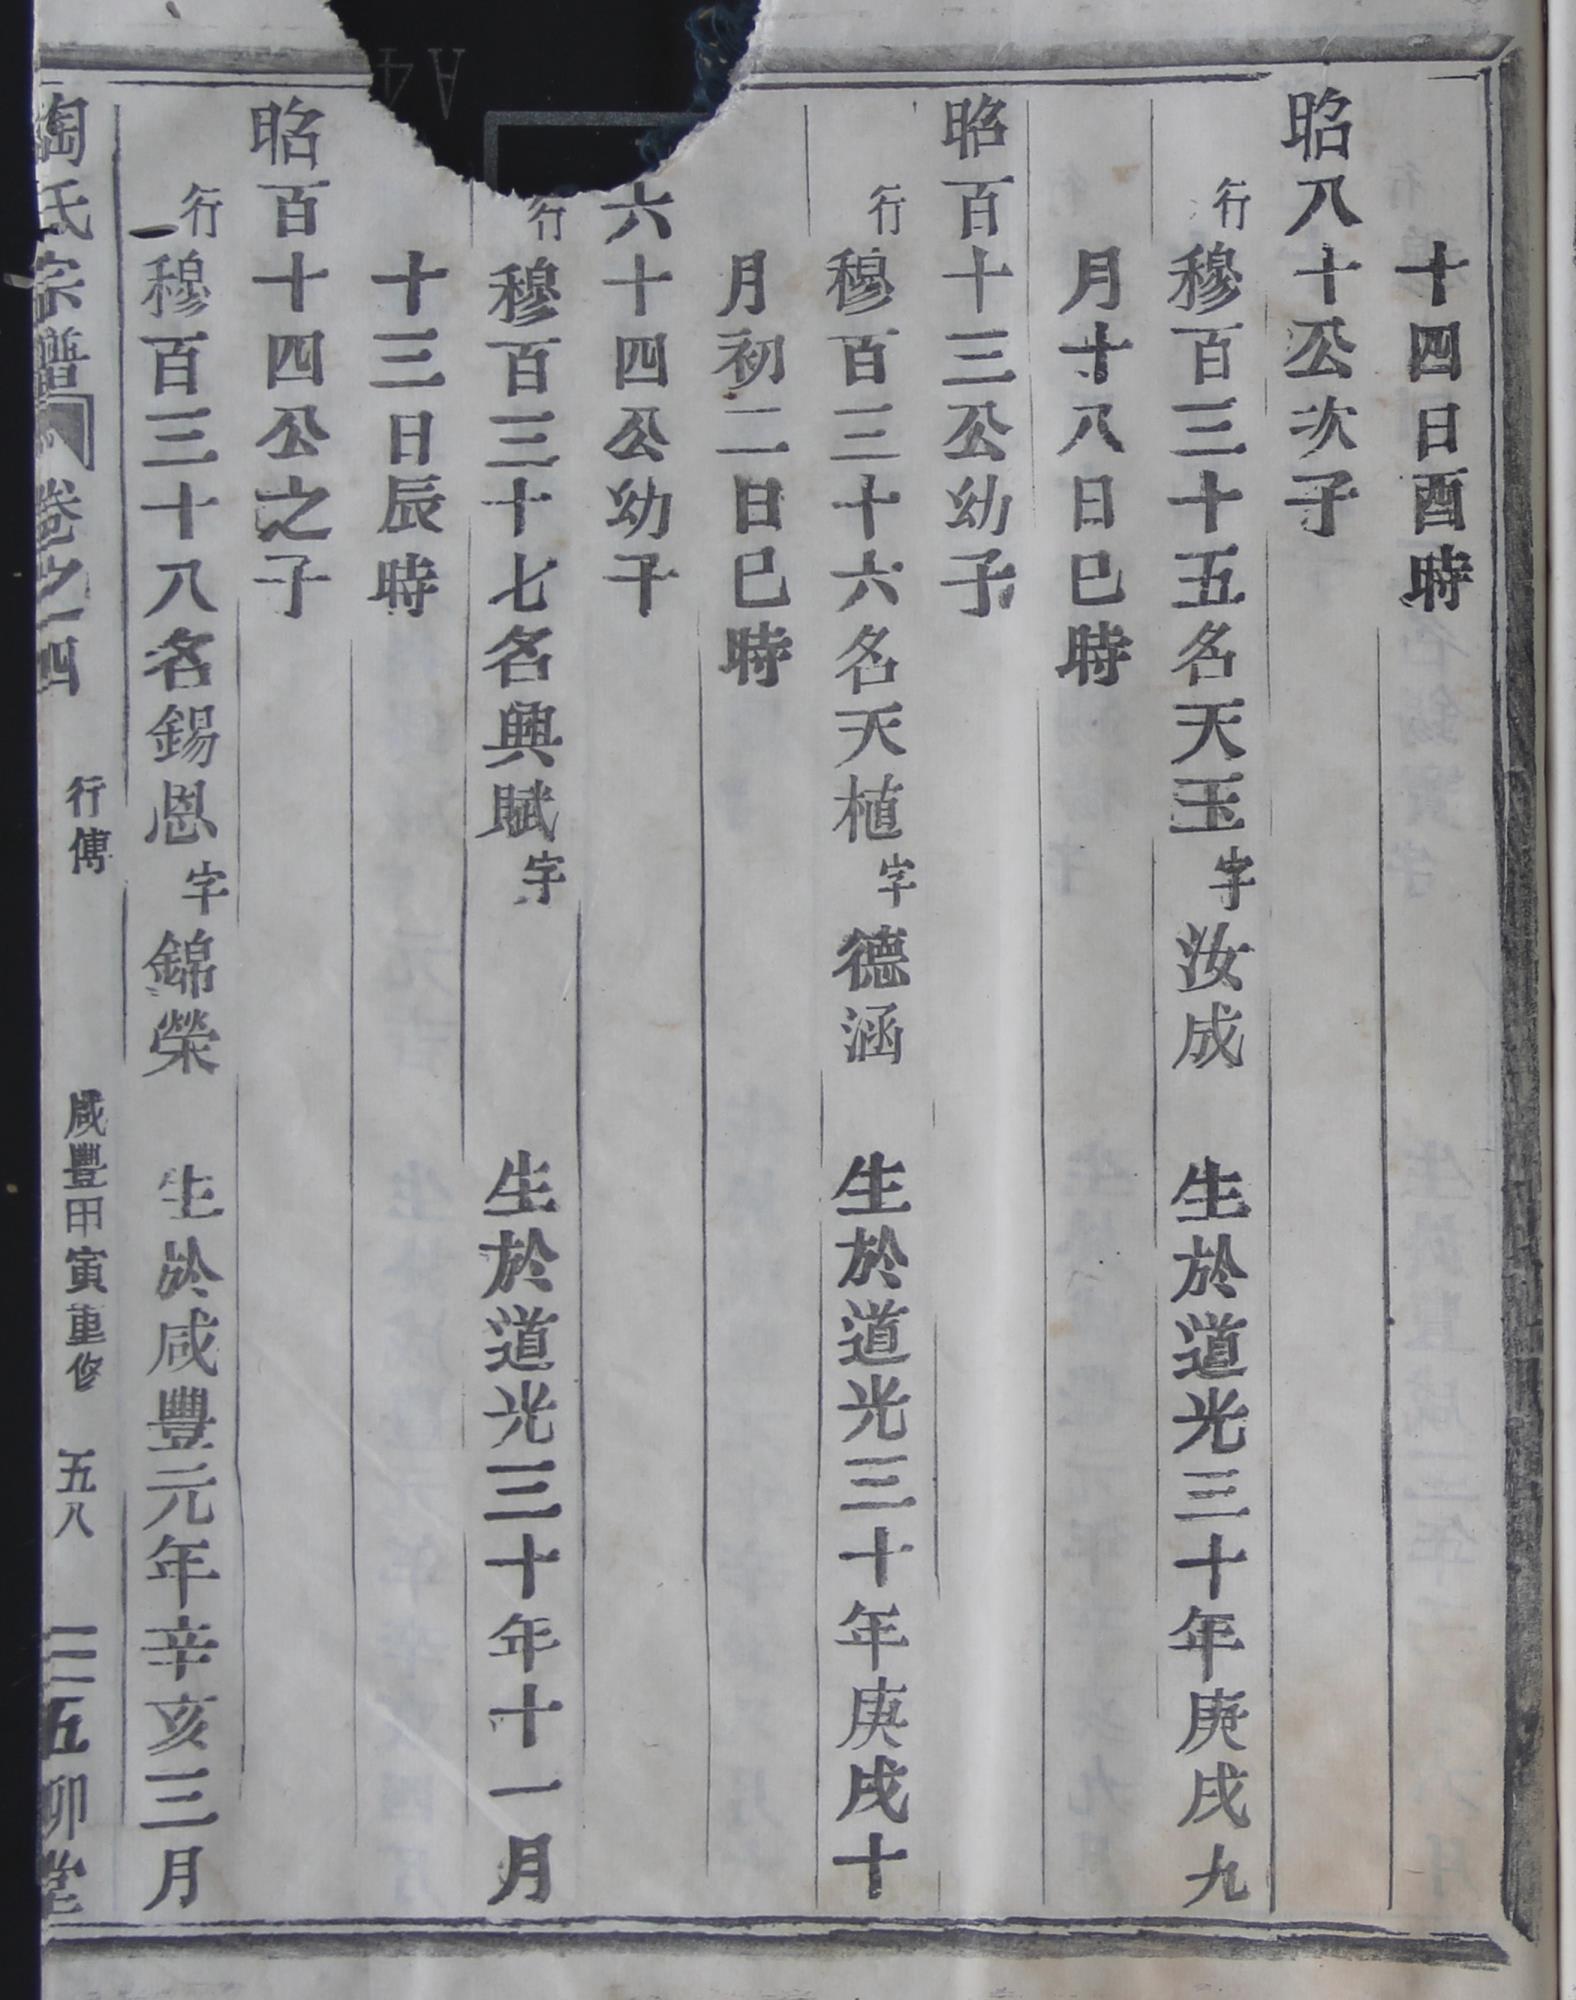 十四日酉時
昭八十公次子
行穆百三十五名天玉字汝成 生於道光三十年庚戌九
月十八日巳時
昭百十三公幼子
行穆百三十六名天植字德涵 生於道光三十年庚戌十
月初二日巳時
六十四公幼子
行穆百三十七名興賦字 生於道光三十年十一月
十三日辰時
昭百十四公之子
行穆百三十八名錫恩字錦榮 生於咸豐元年辛亥三月
陶氏宗譜 卷之四 行傳 咸豐甲寅重修 五八 五柳堂